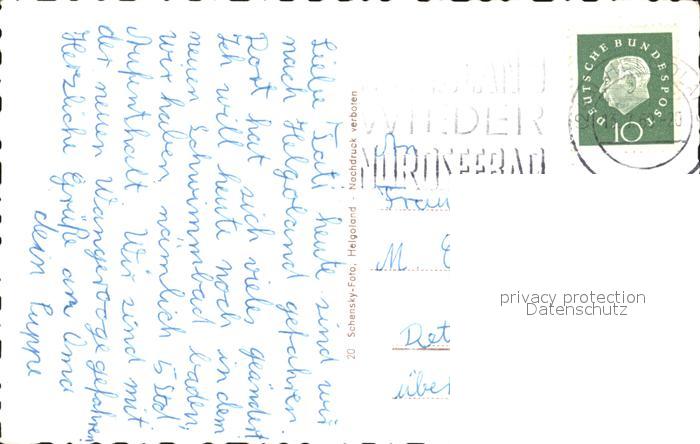 Liebe Tati, heute sind wir
nach Helgoland gefahren.
Dort hat sich vieles geändert.
Ich will heute noch in dem
neuen Schwimmbad baden,
wir haben nämlich 5 Std.
Aufenthalt. Wir sind mit
der neuen Wangerooge gefahren
Herzliche Grüße am Oma
dein Puppe
20 Schensky-Foto, Helgoland - Nachdruck verboten
WIEDER
NORDSEEBAD
DEUTSCHE BUNDESPOST
10
Frau
M.
privacy protection
Datenschutz